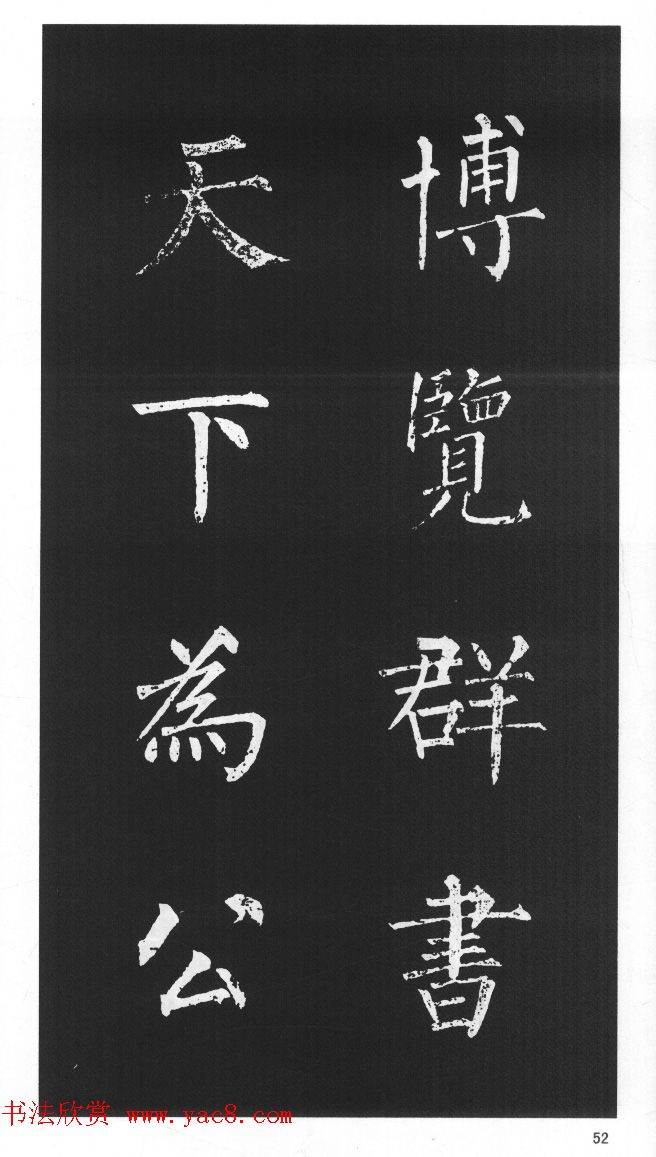 博覽群書
天下為公
书法欣赏 www.yac8.com
52